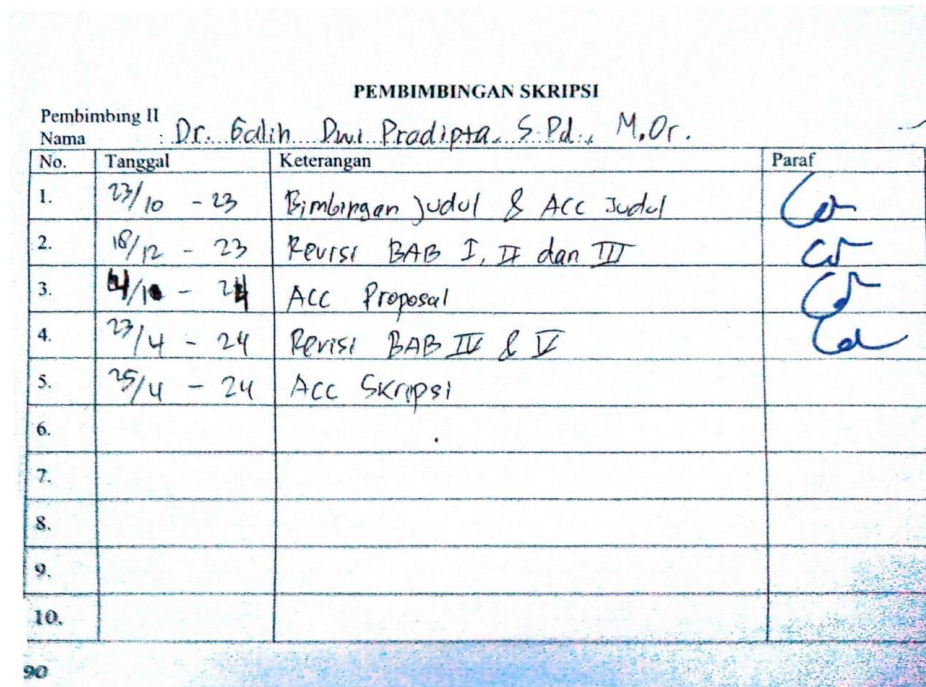 PEMBIMBINGAN SKRIPSI
Pembimbing II
Nama : Dr. Galih Dwi Pradipta, S.Pd., M.Or.
No. Tanggal Keterangan Paraf
1. 23/10 - 23 Bimbingan Judul & Acc Judul
2. 18/12 - 23 Revisi BAB I, II dan III
3. - 24 Acc Proposal
4. 23/4 - 24 Revisi BAB IV & V
5. 25/4 - 24 Acc Skripsi
6.
7.
8.
9.
10.
90